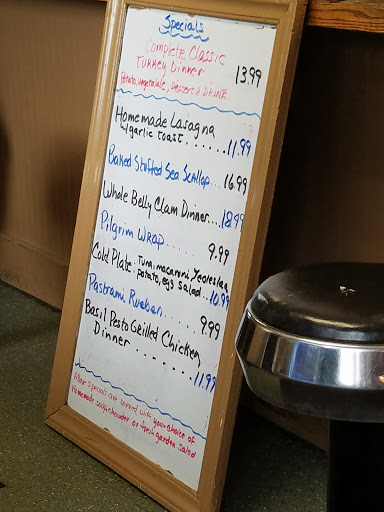 Specials
Complete Classic
Turkey Dinner 13.99
Potato, vegetable, Dessert & Drink
Homemade Lasagna
w/garlic toast.......11.99
Baked Stuffed Sea Scallop... 16.99
Whole Belly Clam Dinner....18.99
Pilgrim Wrap...... 9.99
Cold Plate. Tuna, macaroni,
potato, egg salad...10.99
Pastrami Rueban...... 9.99
Basil Pesto Grilled Chicken
Dinner........11.99
Above specials are served with your choice of
Homemade soup, chowder or fresh garden salad